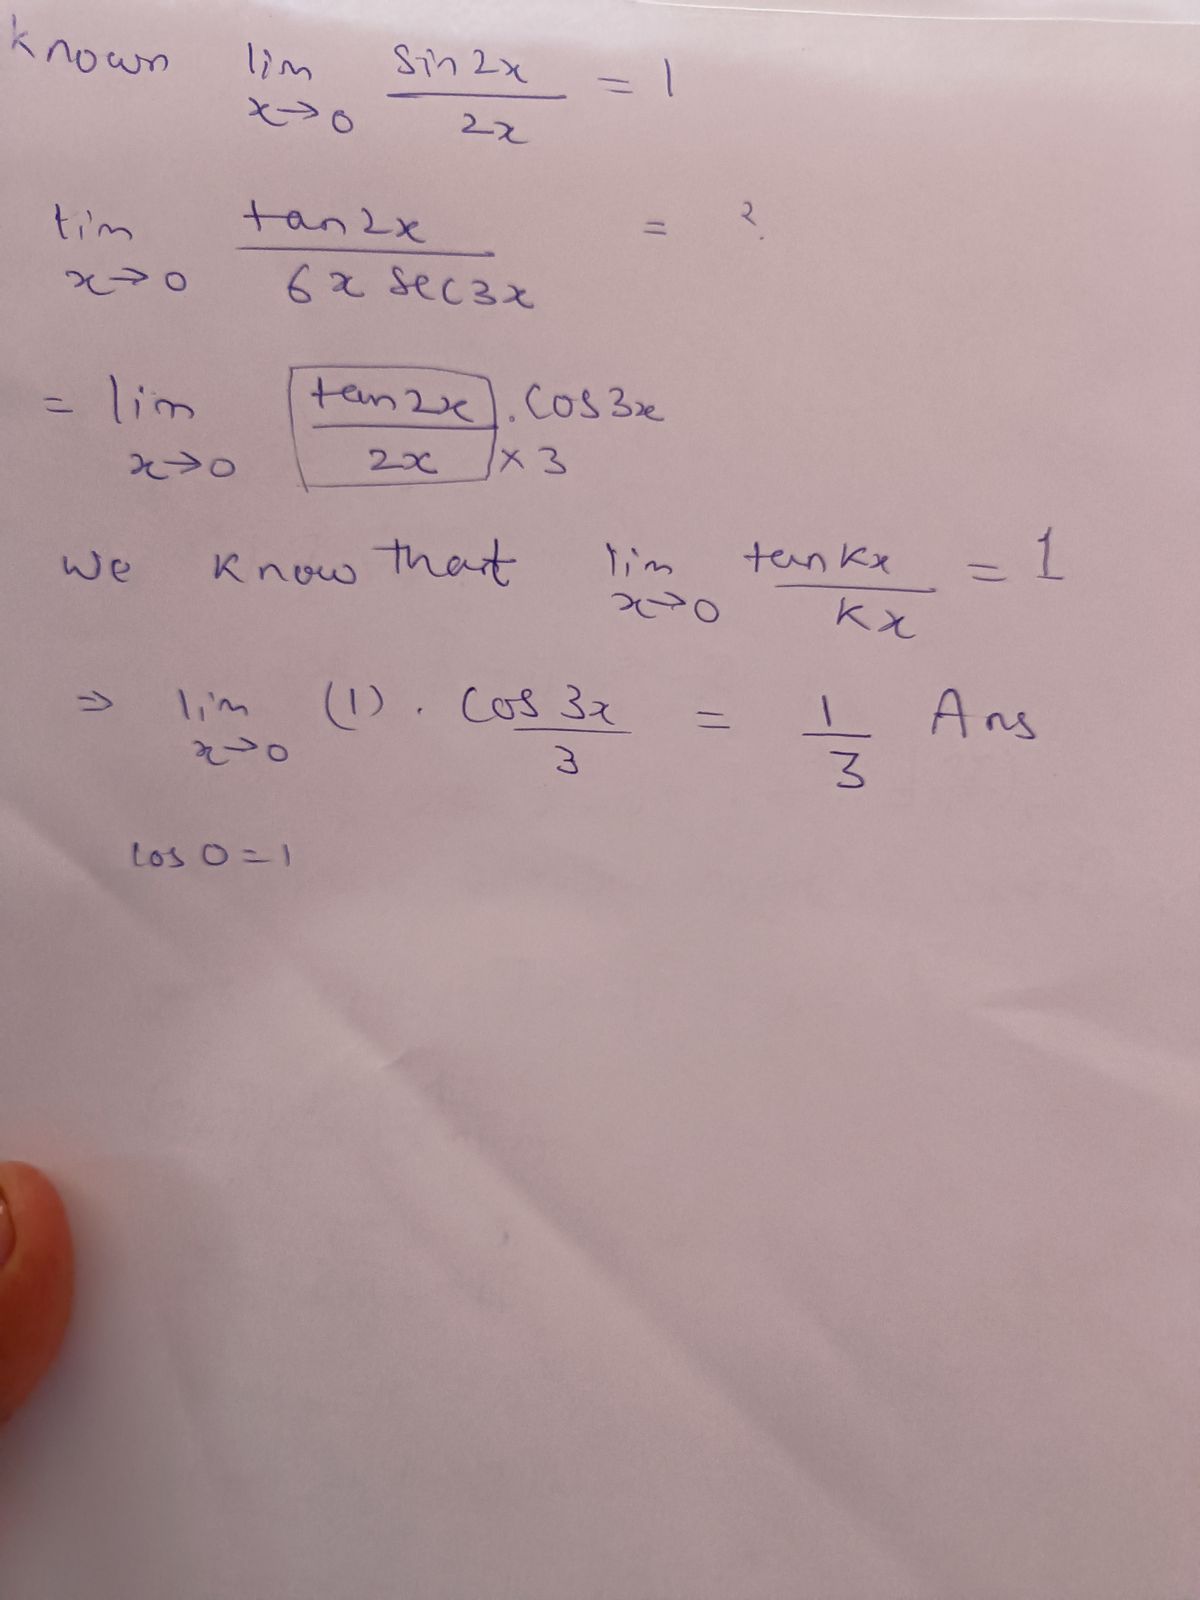 known lim x→0 sin2x / 2x = 1
lim x→0 tan2x / 6x sec3x = ?
= lim x→0 tan2x / 2x × 3 . cos3x
we know that lim x→0 tan kx / kx = 1
⇒ lim x→0 (1) . cos 3x / 3 = 1 / 3 Ans
cos 0 = 1